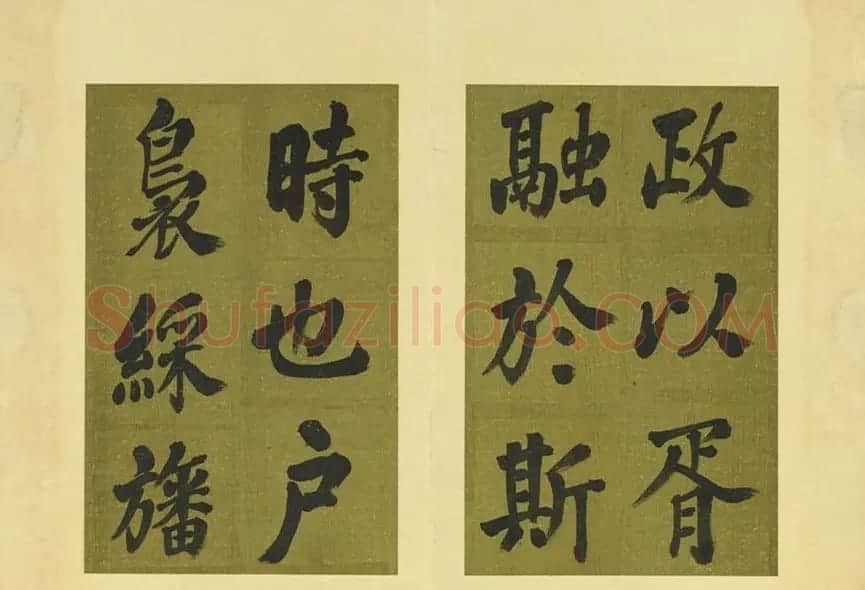 政以胥
融於斯
時也户
裊綵旛
Shufaziliao.COM